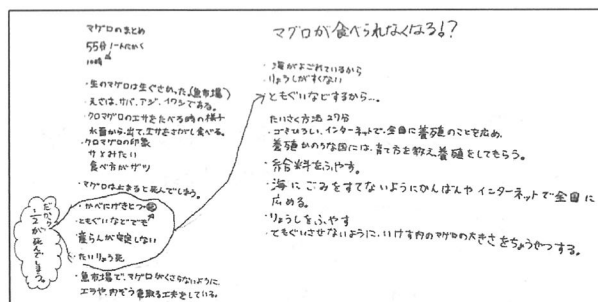 マグロのまとめ
55分 ノートにかく
・生のマグロは生ぐさかった(魚市場)
・えさは、サバ、アジ、イワシである。
・クロマグロのエサをたべる時の様子
水面から、出て、エサをさがし食べる。
・クロマグロの印象
サとみたい
食べ方がザツ
・マグロは止まると死んでしまう。
・かべにげきとつ
・ともぐいなどでも
産らんが安定しない
・たいりょう死
だから1/2が死んでしまう。
・魚市場で、マグロがくさらないように、
エラや、内ぞうを取る工夫をしている。
マグロが食べられなくなる!?
・海がよごれているから
・りょうしがすくない
ともぐいなどするから…。
たいさく方法 27分
・ゴミひろい、インターネットで、全国に養殖のことを広め、
養殖かのうな国には、育て方を教え、養殖をしてもらう。
・給料をふやす。
・海にごみをすてないようにかんばんやインターネットで全国に
広める。
・りょうしをふやす
・ともぐいさせないように、いけす内のマグロの大きさをちょうせつする。